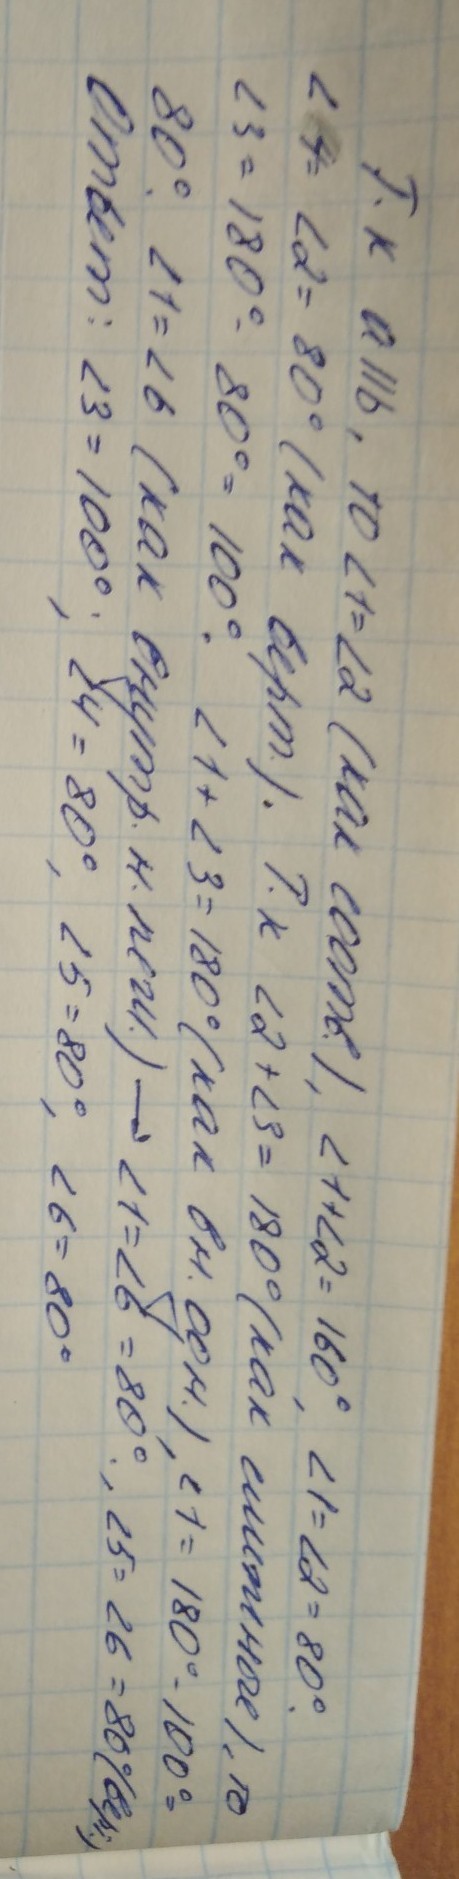 Т.к a||b, то ∠1=∠2 (как соотв.), ∠1+∠2=160°, ∠1=∠2=80°.
∠4=∠2=80° (как верт.). Т.к ∠2+∠3=180° (как смежное), то
∠3=180°-80°=100°. ∠1+∠3=180° (как вн. одн.), ∠1=180°-100°=
80°. ∠1=∠6 (как внутр. н. леж.) → ∠1=∠6=80°, ∠5=∠6=80° (верт.)
Ответ: ∠3=100°, ∠4=80°, ∠5=80°, ∠6=80°